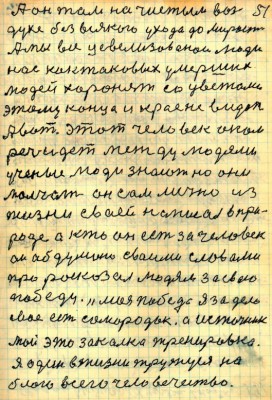 51
А он там на чистым воз
духе без всякого ухода до мирност
А мы все цевелизованой люди
нас как таковых умерших
людей хоронят со цветами
этому конца и края не видать
А вот этот человек о ком
речь идет между людями
ученые люди знают но они
молчат он сам лично из
жизни своей написал в при
роде а кто он ест за человек
он абдумано своими словами
про росказал людям за свою
победу. "моя победа я за дело
мое ест самородок. а источник
мой это закалка тренировка.
Я один в жизни тружуся на
благо всего человечество.